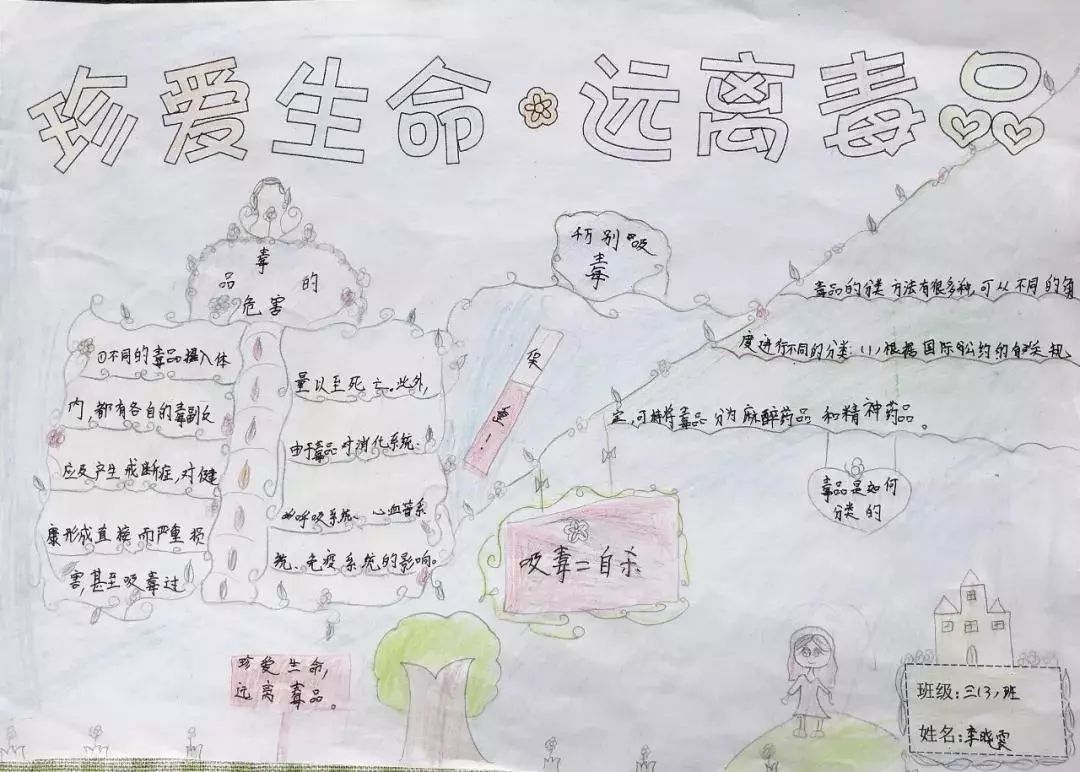 珍爱生命·远离毒品
毒
品 的
危害
①不同的毒品摄入体
内,都有各自的毒副反
应及产生戒断症,对健
康形成直接而严重损
害,甚至吸毒过
量以至死亡。此外,
由于毒品对消化系统、
呼吸系统、心血管系
统、免疫系统的影响。
千万别吸
毒
吸毒=自杀
毒品的分类方法有很多种,可从不同的角
度进行不同的分类(1)根据国际公约的有关规
定,可将毒品分为麻醉药品和精神药品。
毒品是如何
分类的
珍爱生命,
远离毒品。
班级:三(3)班
姓名:李晓雯